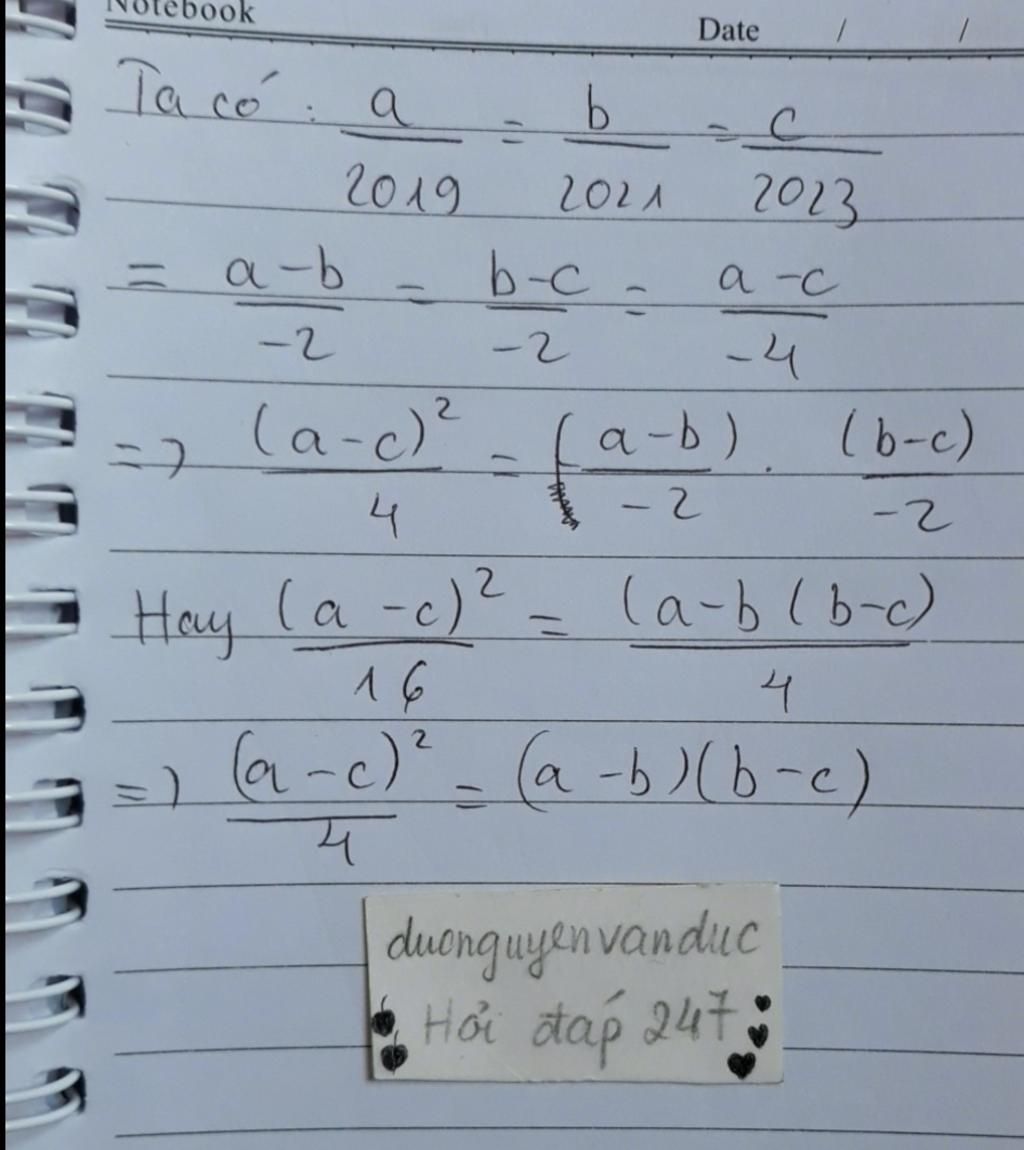 Notebook
Date / /
Ta có : a/2019 = b/2021 = c/2023
= a-b/-2 = b-c/-2 = a-c/-4
=> (a-c)²/4 = (a-b)/-2 . (b-c)/-2
Hay (a-c)²/16 = (a-b(b-c)/4
=> (a-c)²/4 = (a-b)(b-c)
duonguyenvanduc
Hỏi đáp 247